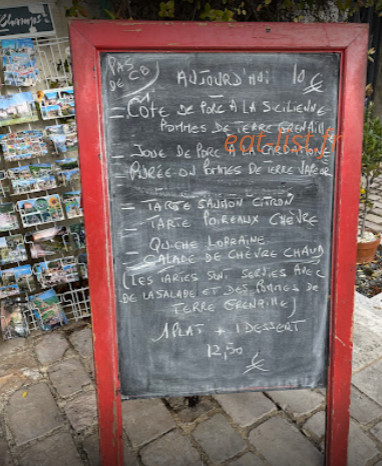 Champs
PAS DE CB
AUJOURD'HUI 10€
= CÔTE DE PORC À LA SICILIENNE
POMMES DE TERRE GRENAILLE
eat-list.fr
- JOUE DE PORC À LA CARDATIONE
= PURÉE OU POMMES DE TERRE VAPEUR
= TARTE SAUMON CITRON
- TARTE POIREAUX CHÈVRE
- QUICHE LORRAINE
- SALADE DE CHÈVRE CHAUD
(LES TARTES SONT SERVIES AVEC
DE LA SALADE ET DES POMMES DE
TERRE GRENAILLE)
1 PLAT + 1 DESSERT
12,50 €